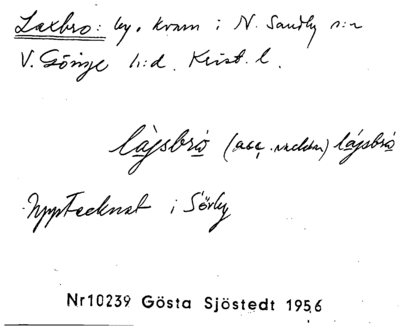 Laxbro: by. kvarn i N. Sandby s:n
V. Göinge h:d. Krist. l.
lájsbró (acc. växlar) lájsbró
Upptecknat i Sörby
Nr10239 Gösta Sjöstedt 1956